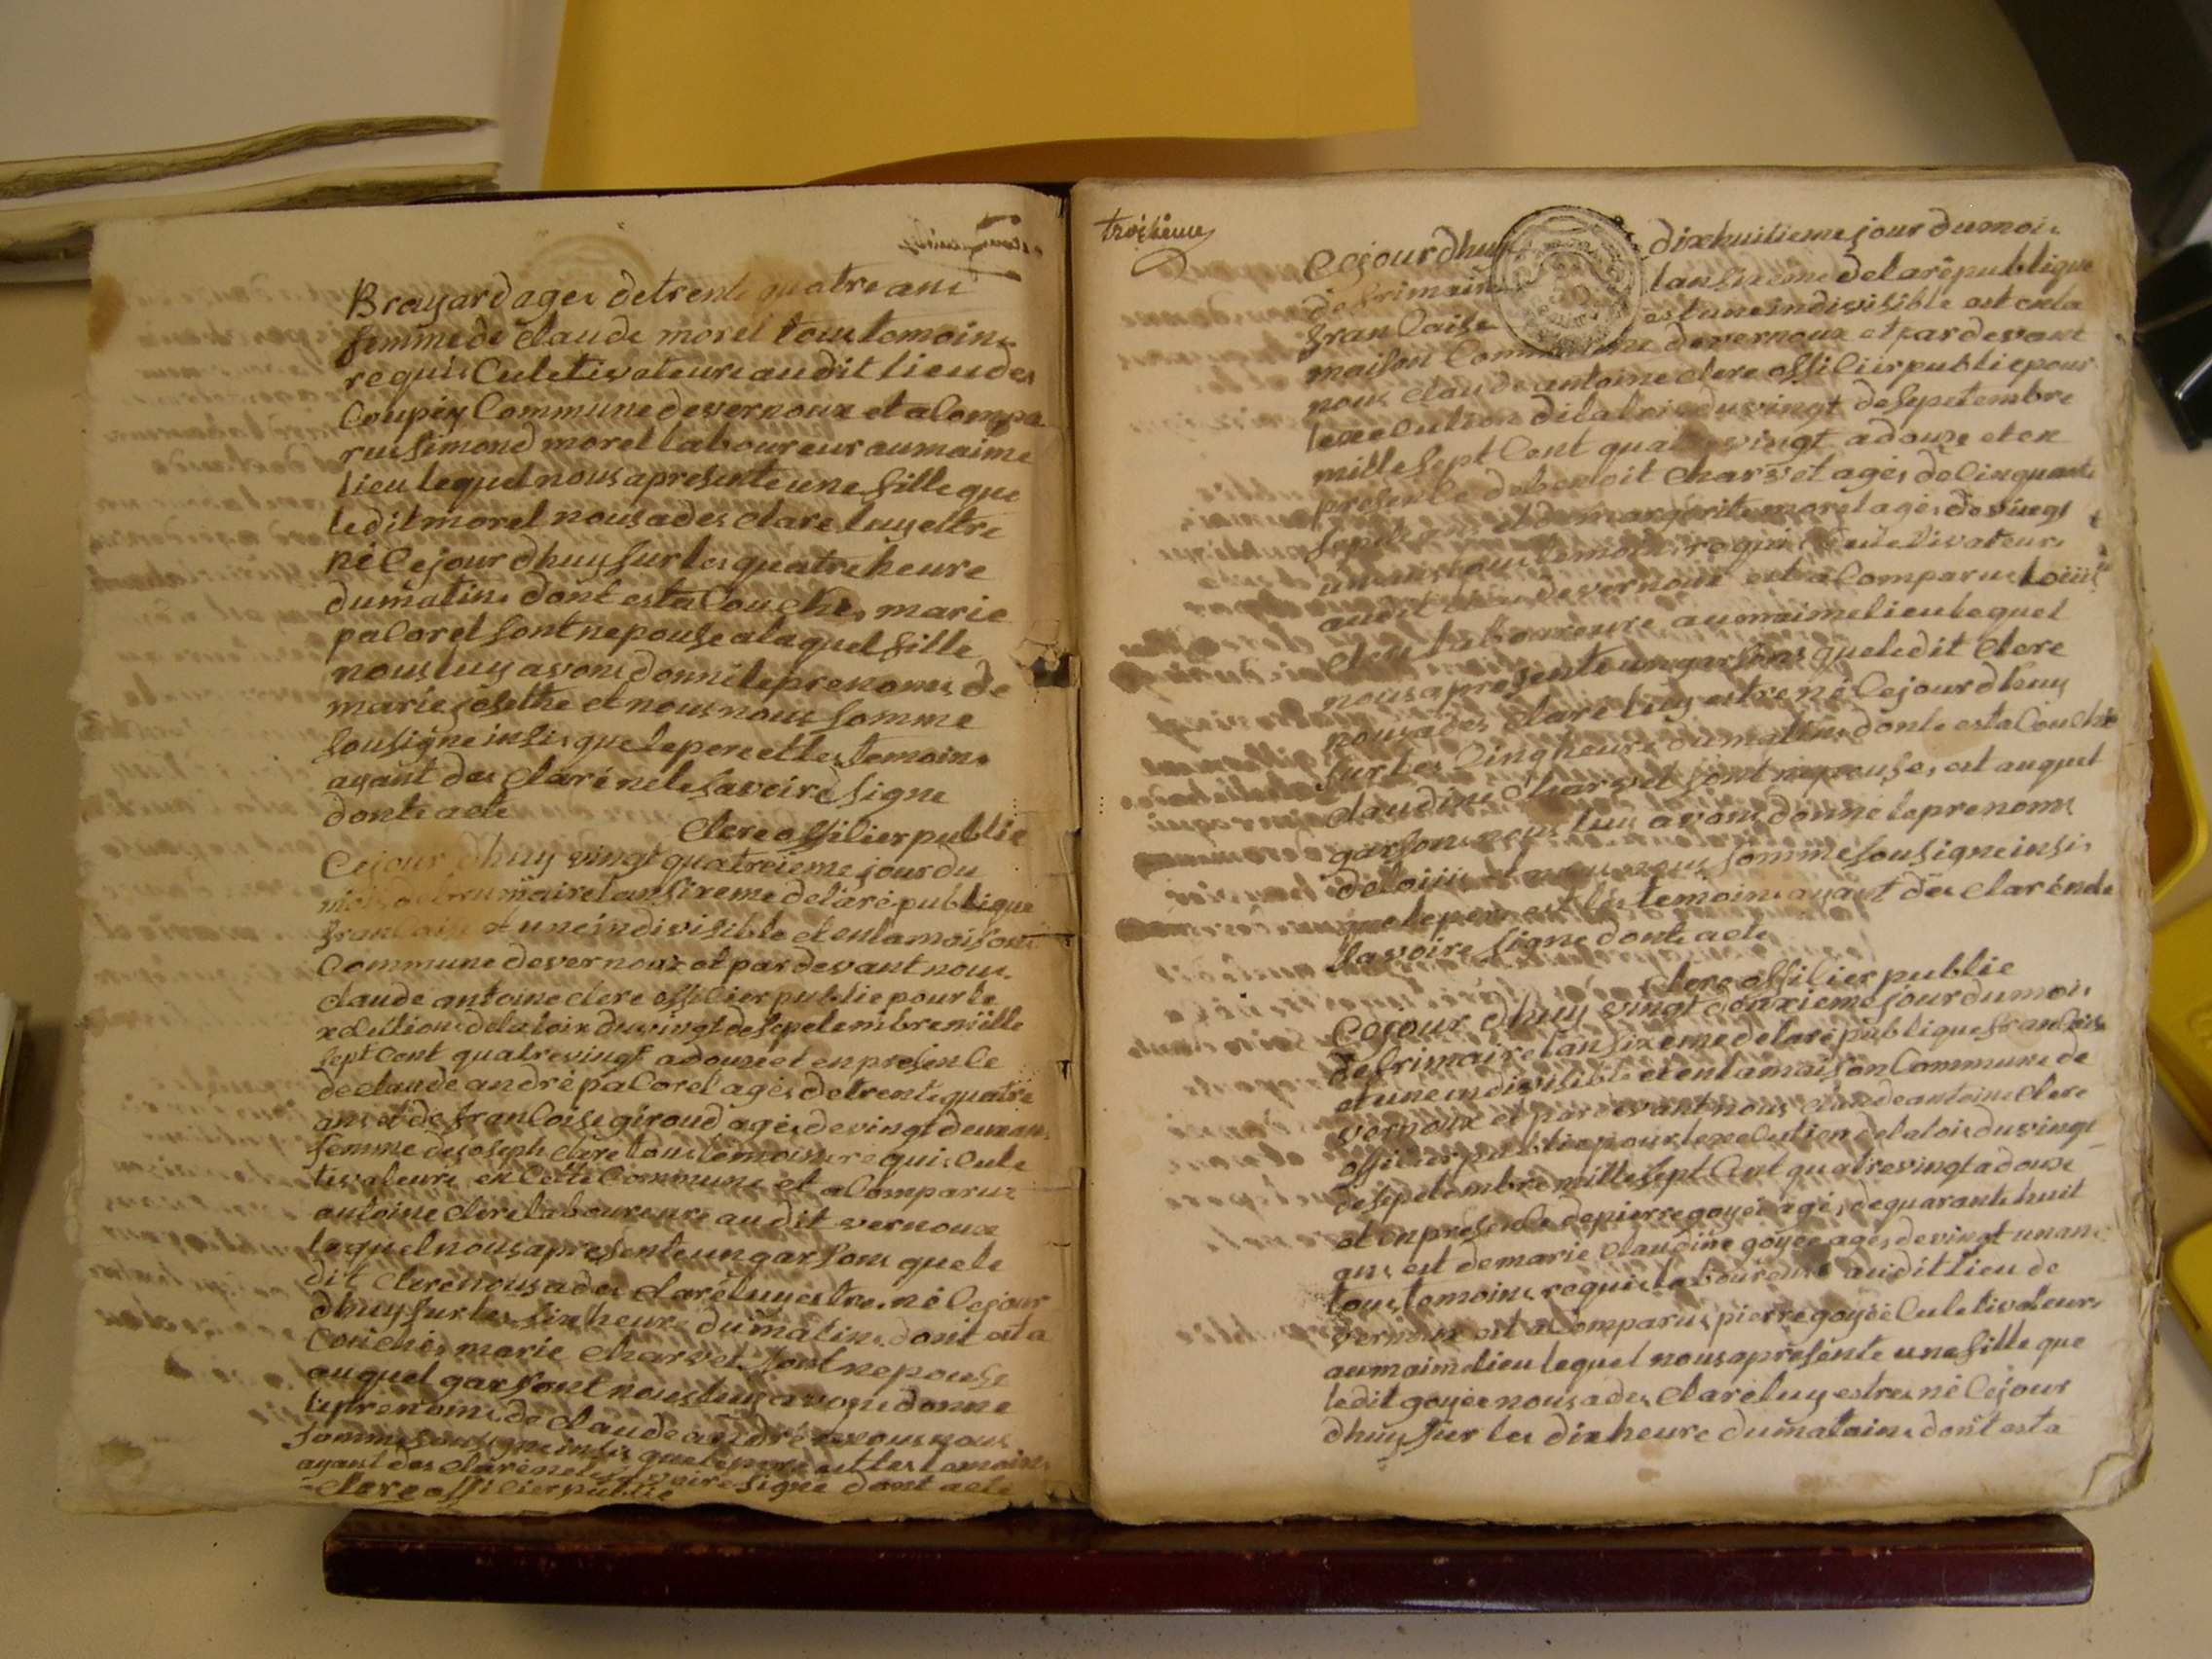 Brayard ages de trente quatre ans
femme de claude morel tous temoins
requis Culetivateurs au dit lieu des
Coupéy Commune devernoux et a Compa
rus Simond morel laboureur au maime
lieu lequel nous a presente une fille que
ledit morel nous a des clare luy estre
né Ce jour dhuy sur les quatre heure
du matin dont est a Couché marie
paCoret sont nepouse a laquel fille
nous luy avons donné le prenoms de
marie josethe et nous nous somme
Sousigne insis que le pere et les temoins
ayant des claré nele savoire signe
donte acte
Clere offilier publie
Ce jour dhuy vingt quatreieme jour du
mois de brumaire lan sixeme de la republique
francaise et une indivisible et en la maison
Commune devernoux et par devant nous
claude antoine clere offilier publie pour le
xecution de la loix du vingt de sepetembre mille
sept Cent quatre vingt a douze et en presen le
de claude andré paCoret ages de trente quatre
ans et de franCoise giroud ages de vingt deux ans
femme de joseph clere tous temoins requis Cule
tivateurs en Cette Commune et a Comparus
antoine clere laboureure au dit vernoux
lequel nous a presente un garsons que le
dit clere nous a des claré luy estre né Ce jour
dhuy sur les six heure du matin dont est a
Couché marie charvet sont nepouse
auquel garsont nous luy avons donne
le prenoms de claude andré et nous nous
somme sousigne insis que le pere et les temoins
ayant des claré nele savoire signe dont acte
clere offilier publie
troisieme
Ce jour dhuy dixhuitieme jour du mois
de frimaire lan sixeme de la republique
franCaise et une indivisible est en la
maison Commune devernoux et par devant
nous claude antoine clere offilier publie pour
lexecution de la loix du vingt de sepetembre
mille sept Cent quatre vingt a douze et en
presen le de benoit charvet ages de Cinquante
sept ans et de margerite morel ages de vingt
un ans tous temoins requis Culetivateurs
au dit lieu devernoux est a Comparus loiiis
clere laboureure au maime lieu lequel
nous a presente un garsons que ledit clere
nous a des claré luy estre né Ce jour dhuy
sur les Cinq heure du matin donte est a Couché
claudine charvet sont nepouse, est auquel
garsons nous luy avons donné le prenoms
de loiiis et nous nous somme sousigne insis
que le pere est les temoins ayant des claré nele
savoire signe donte acte
Clere offilier publie
Ce jour dhuy vingt deuxieme jour du mois
de frimaire lan sixeme de la republique franCaise
et une indivisible et en la maison Commune de
vernoux et par devant nous claude antoine clere
offilier publie pour lexecution de la loix du vingt
de sepetembre mille sept Cent quatre vingt a douze
et en presen le de pierre goyée ages de quarante huit
ans est de marie claudine goyée ages de vingt un ans
tous temoins requis laboureure au dit lieu de
vernoux est a Comparus pierre goyée Culetivateurs
au maime lieu lequel nous a presente une fille que
ledit goyée nous a des claré luy estre né Ce jour
dhuy sur les dix heure du matains dont est a